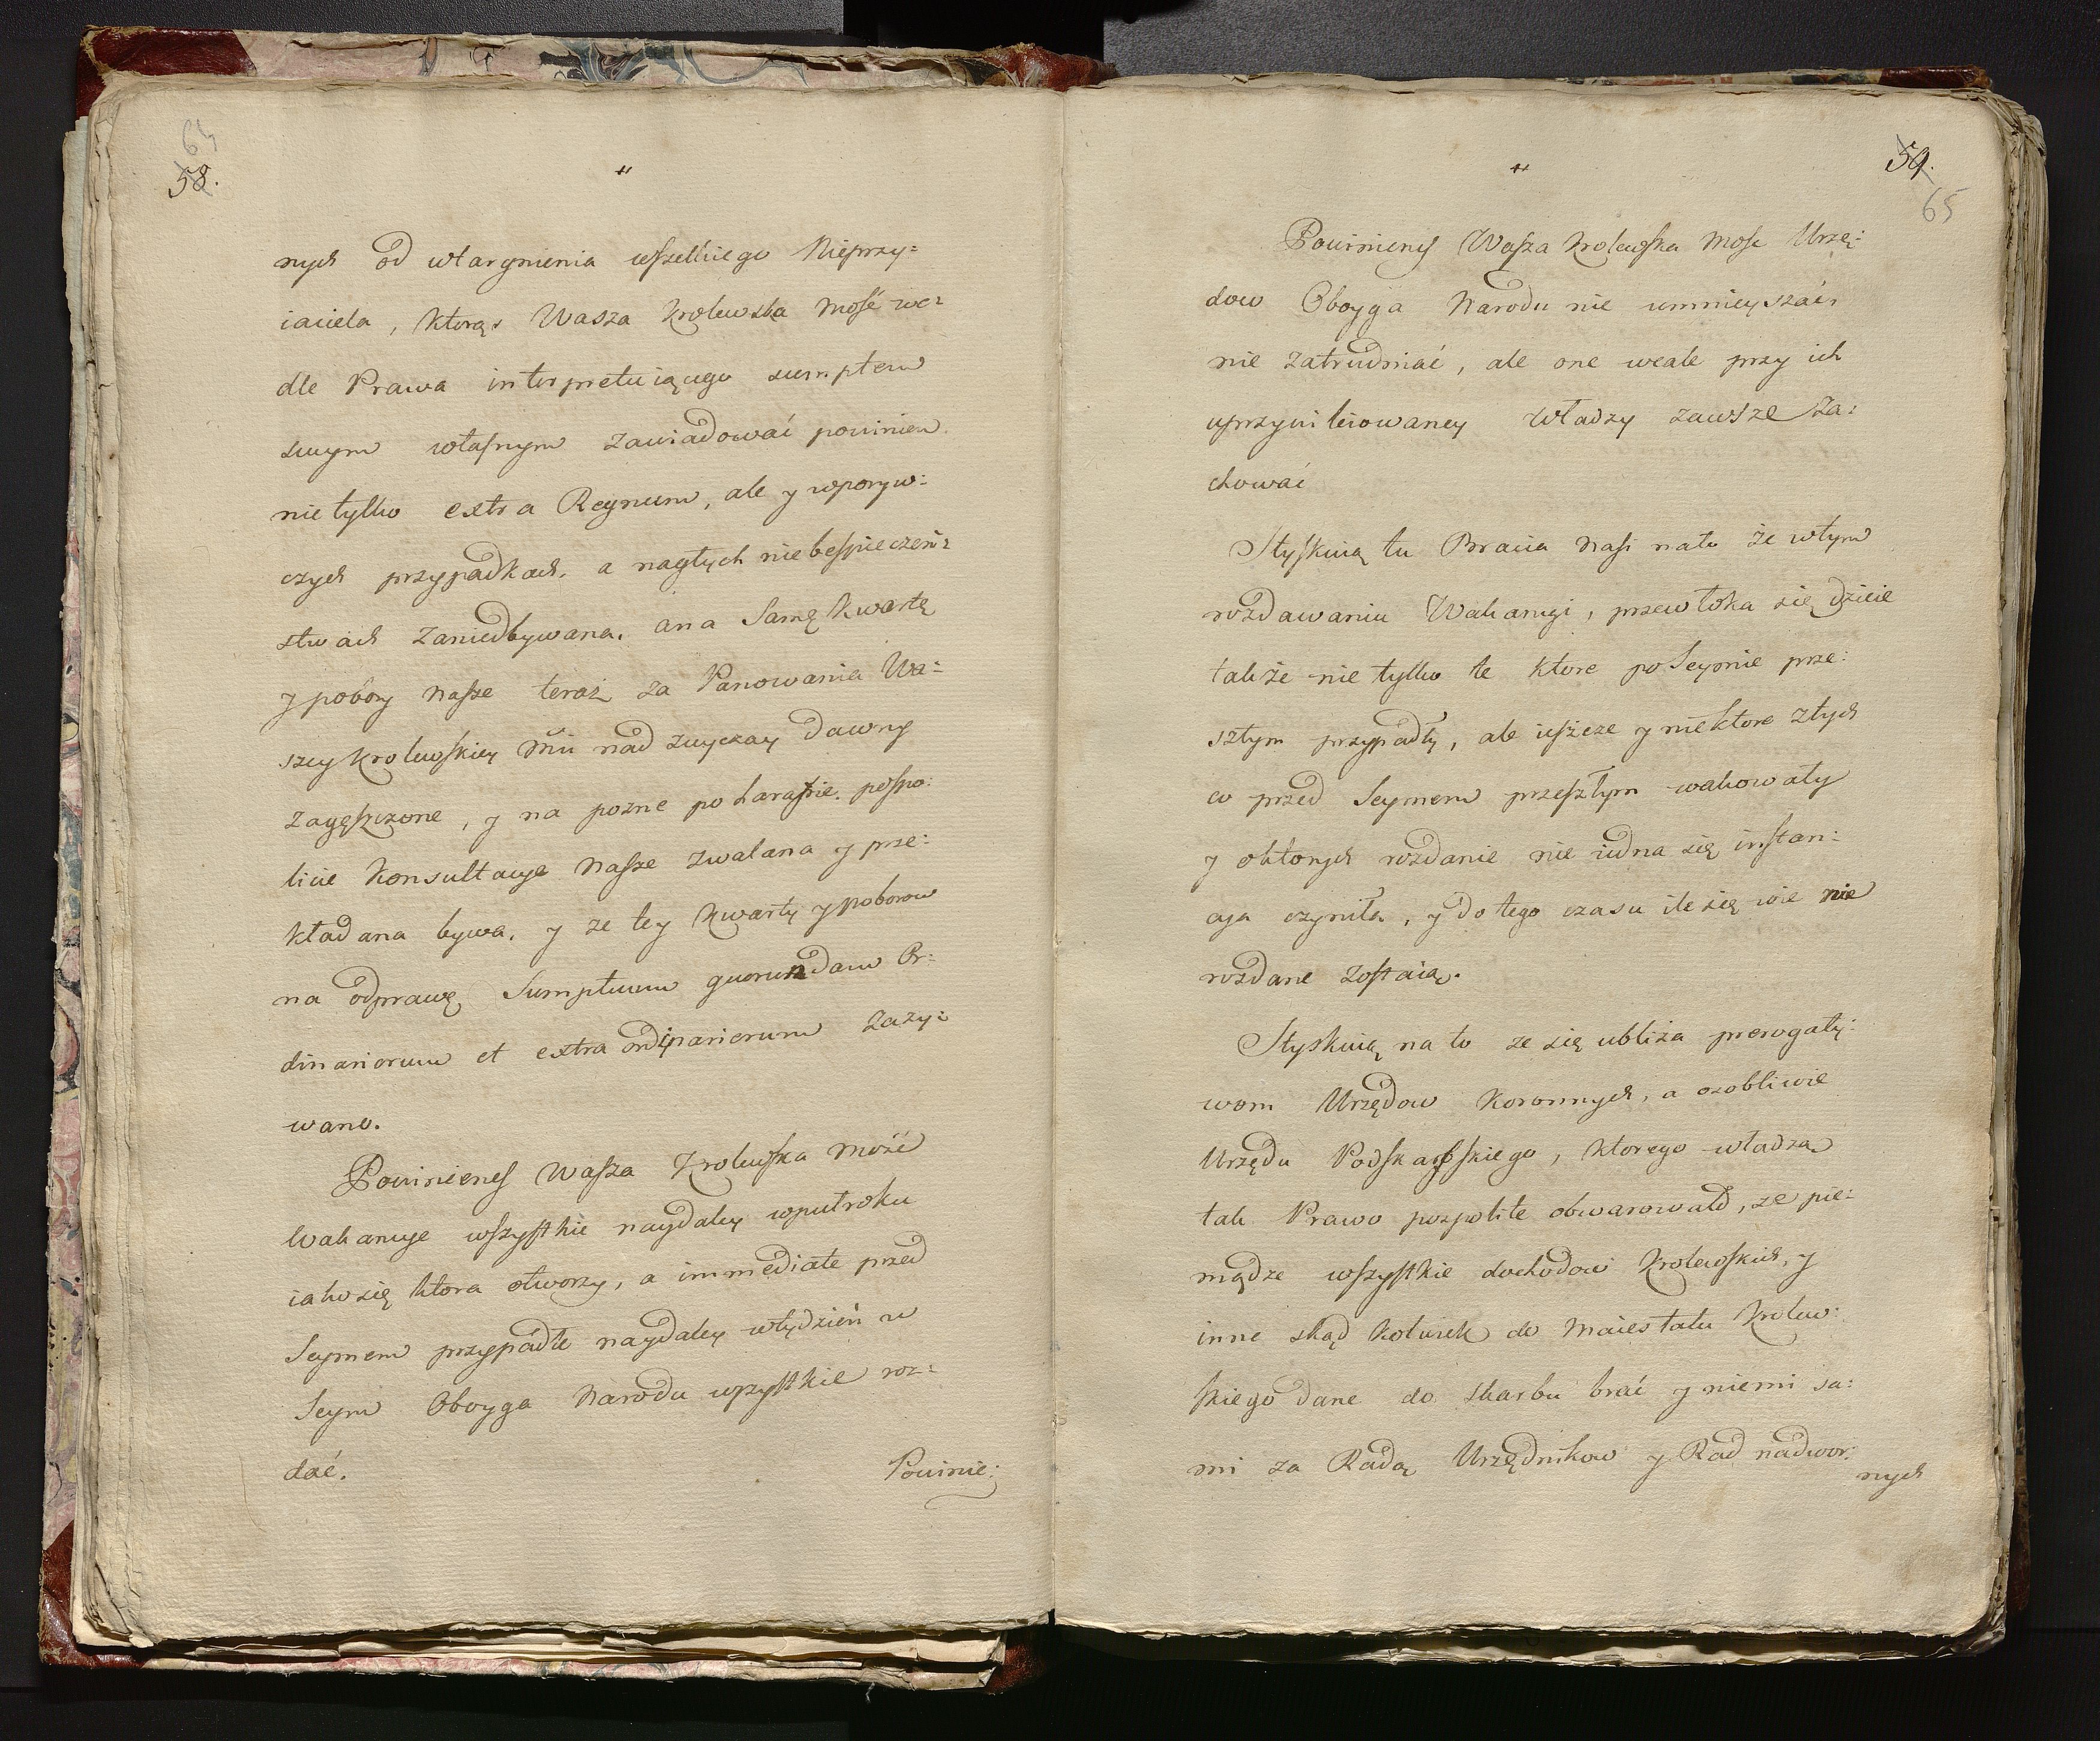 64
58.
nych od wtargnienia wszelkiego Nieprzy=
iaciela, ktorąs Wasza Krolewska Mość we=
dle Prawa interpretuiącego sumptem
swym własnym zawiadować powinien
nie tylko extra Regnum, ale y w poryw=
czych przypadkach, a nagłych niebespieczeń=
stwach zaniedbywana, a na Samę Kwartę
y pobory nasze teraz za Panowania Wa=
szey Krolewskiey Mći nad zwyczay dawny
zagęszczone, y na pozne po harapie. pospo=
licie Konsultacye Nasze zwalana y prze=
kładana bywa, y ze tey Kwarty y poborow
na odprawę Sumptuum quorundam Or=
dinariorum et extra ordinariorum zazy=
wano.
Powinienes Wasza Krolewska Mość
Wakancye wszystkie naydaley w puł roku
iako się ktora otworzy, a immediate przed
Seymem przypadłe naydaley w tydzień w
Seym Oboyga Narodu wszystkie roz=
dać.
Powinie=
59.
65
Powinienes Wasza Krolewska Mość Urzę=
dow Oboyga Narodu nie umnieyszać,
nie zatrudniać, ale one wcale przy ich
uprzywileiowaney Władzy zawsze Za=
chować
Styskuią tu Bracia Nasi na to że w tym
rozdawaniu Wakancyi, przewłoka się dzieie
tak że nie tylko te ktore po Seymie prze=
szłym przypadły, ale ieszcze y niektore z tych
co przed Seymem przeszłym wakowały
y o ktorych rozdanie nie iedna się instan=
cya czyniła, y do tego czasu ile się wie nie
rozdane zostaią.
Styskuią na to ze się ubliża prerogaty=
wom Urzędow Koronnych, a osobliwie
Urzędu Podskarbskiego, ktorego władzą
tak Prawo pospolite obwarowało, ze pie=
niądze wszystkie dochodow Krolewskich, y
inne skąd kolwiek do Maiestatu Krolew=
skiego dane do Skarbu brać y niemi sa=
mi za Radą Urzędnikow y Rad nadwor=
nych